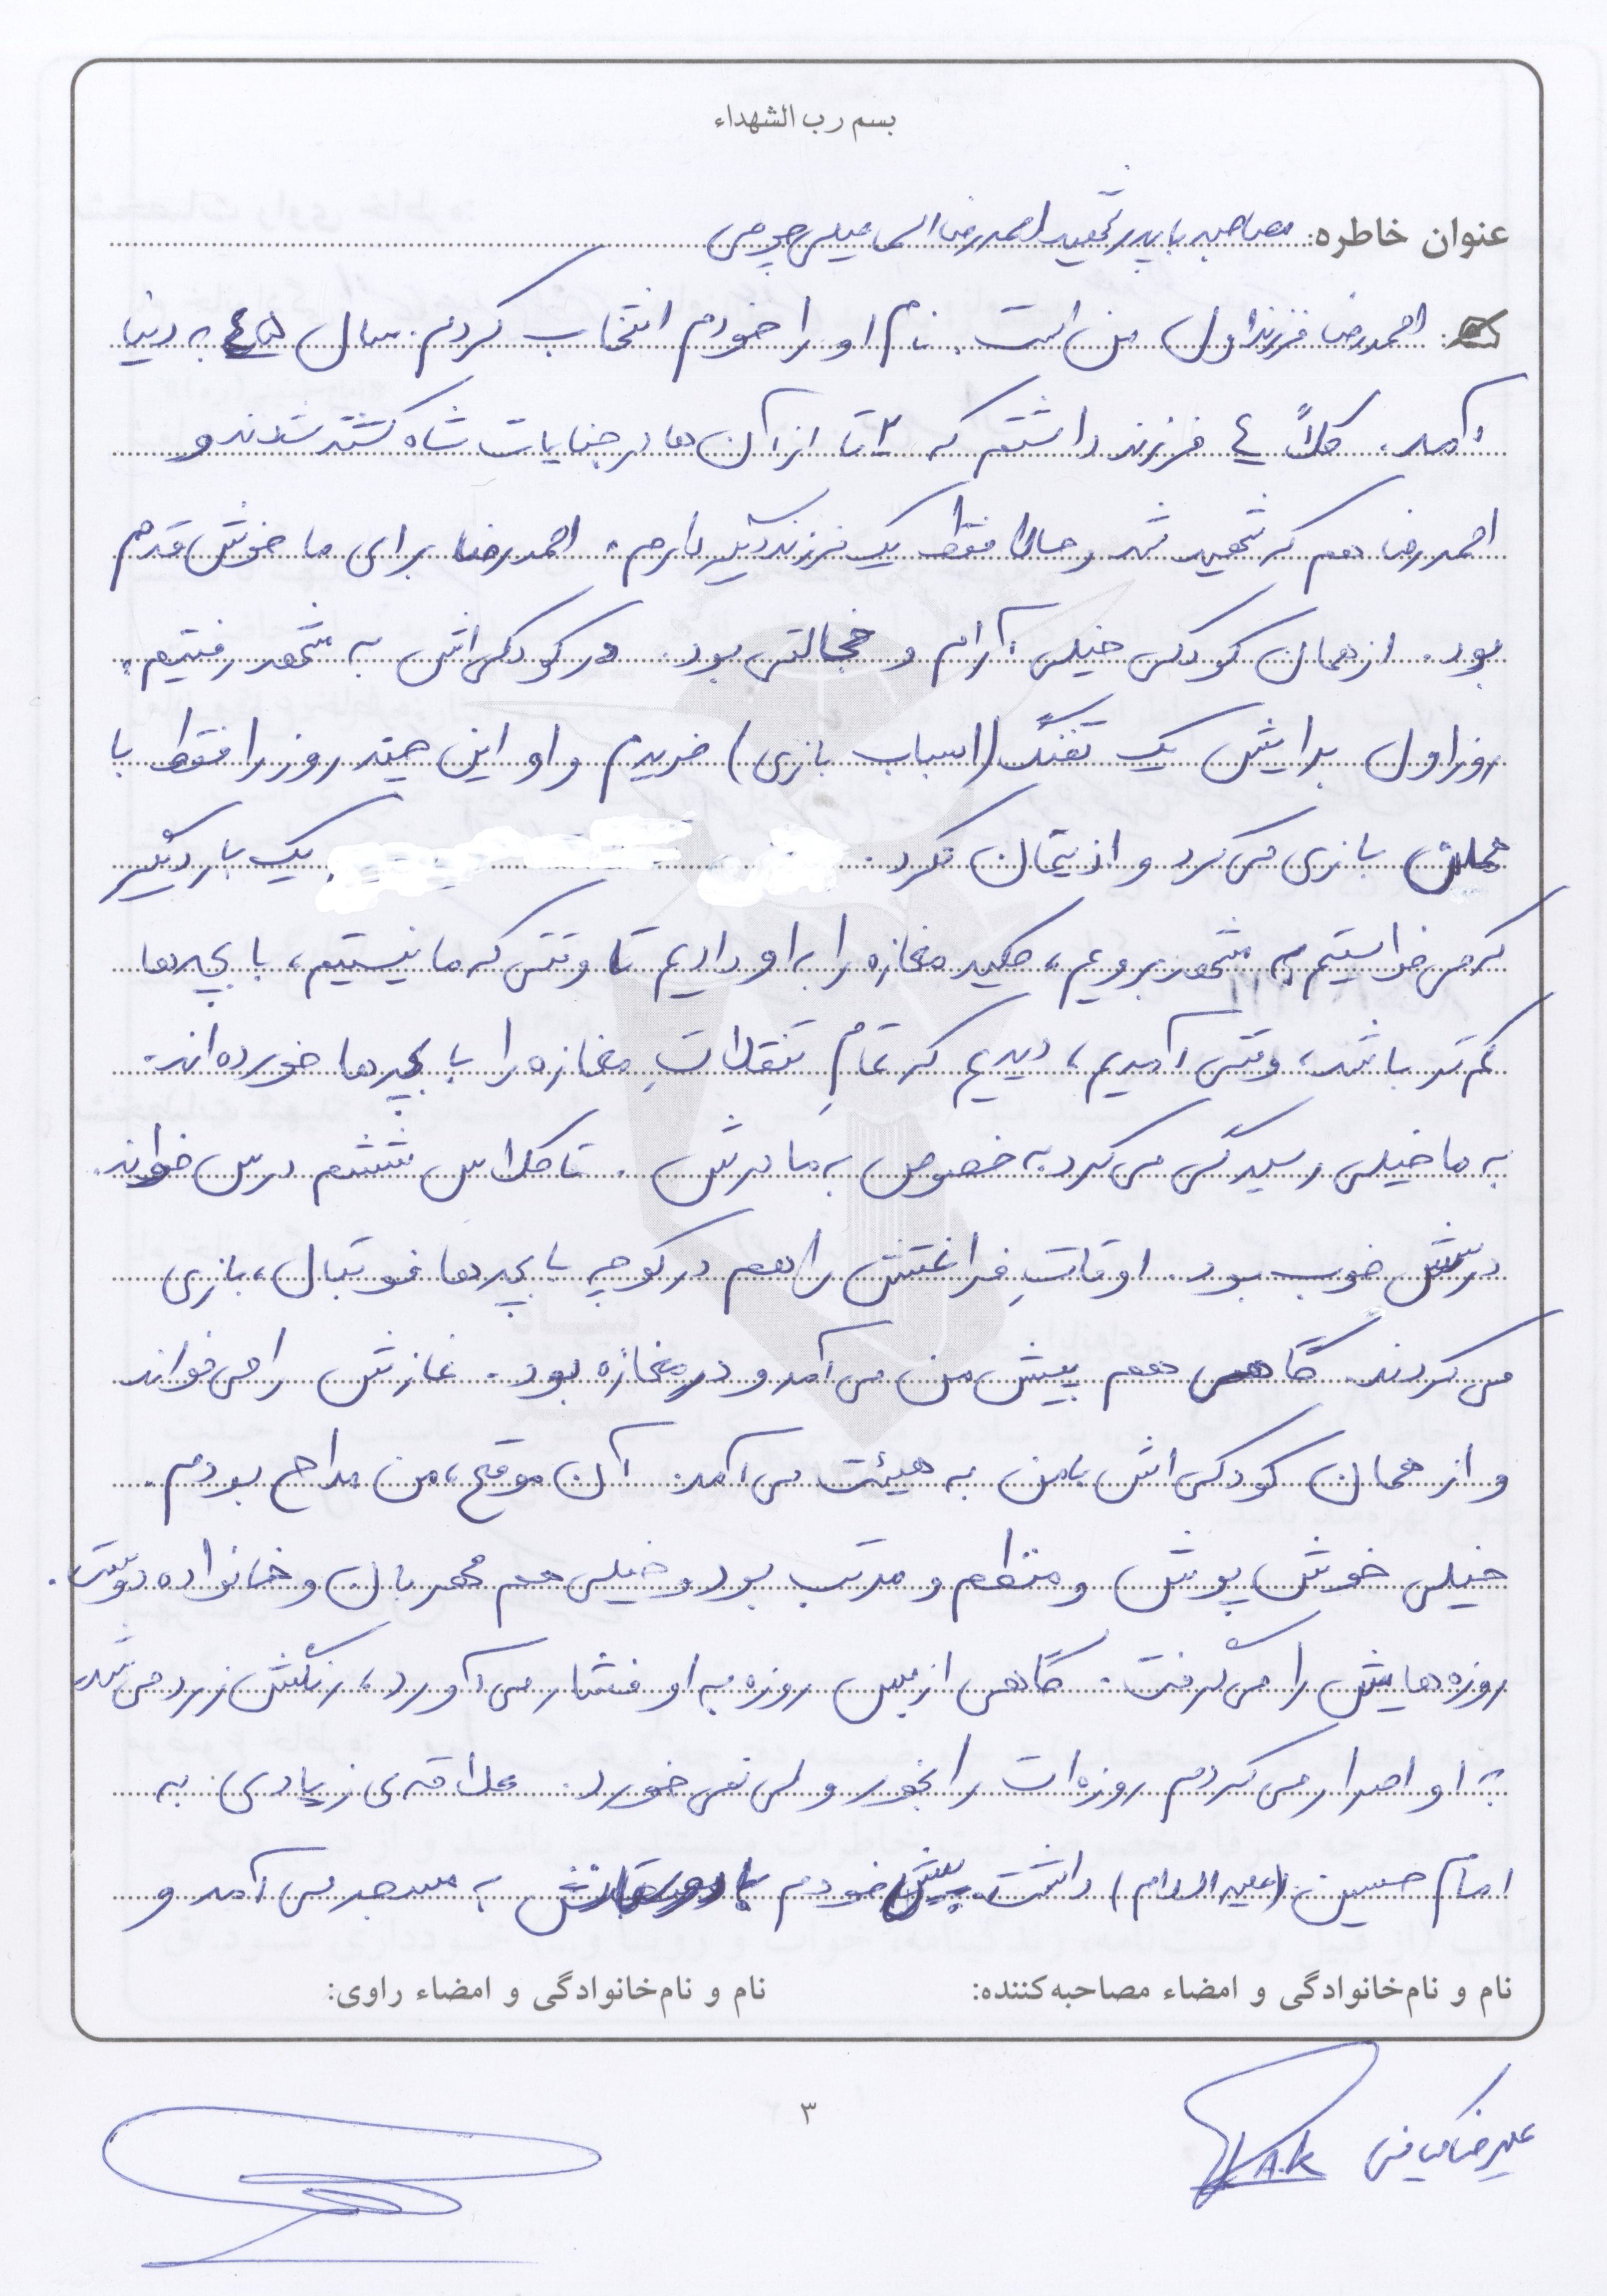 بسم رب الشهداء
عنوان خاطره: مصاحبه با پدر شهید احمدرضا اسماعیلی
احمدرضا فرزند اول من است. نام او را خودم انتخاب کردم. سال ٤٥ به دنیا
آمد. کلاً ٤ فرزند داشتم که ٢ تا از آن ها در جنایات شاه کشته شدند و
احمدرضا هم که شهید شد و حالا فقط یک فرزند دیگر دارم. احمدرضا برای ما خوش قدم
بود. از همان کودکی خیلی آرام و خجالتی بود. در کودکی اش به مشهد رفتیم.
روز اول برایش یک تفنگ (اسباب بازی) خریدم و او این چند روز را فقط با
همان بازی می کرد و اذیتمان نکرد. یک بار دیگر
که می خواستیم به مشهد برویم، کلید مغازه را به او دادیم تا وقتی که ما نیستیم، با بچه ها
کم تر باشد، وقتی آمدیم، دیدیم که تمامِ تنقلاتِ مغازه را با بچه ها خورده اند.
به ما خیلی رسیدگی می کرد به خصوص به مادرش. تا کلاس ششم درس خواند.
درسش خوب بود. اوقاتِ فراغتش را هم در کوچه با بچه ها فوتبال، بازی
می کردند. گاهی هم پیش من می آمد و در مغازه بود. نمازش را می خواند
و از همان کودکی اش با من به هیئت می آمد. آن موقع، من مداح بودم.
خیلی خوش پوش و منظم و مرتب بود و خیلی هم مهربان و خانواده دوست.
روزه هایش را می گرفت. گاهی از بس روزه به او فشار می آورد، رنگش زرد می شد.
به او اصرار می کردم روزه ات را بخور ولی نمی خورد. علاقه ی زیادی به
امام حسین (علیه السلام) داشت. پیش خودم با دوستانش به مسجد می آمد و
نام و نام خانوادگی و امضاء مصاحبه کننده: نام و نام خانوادگی و امضاء راوی:
٣
علیرضا A.K